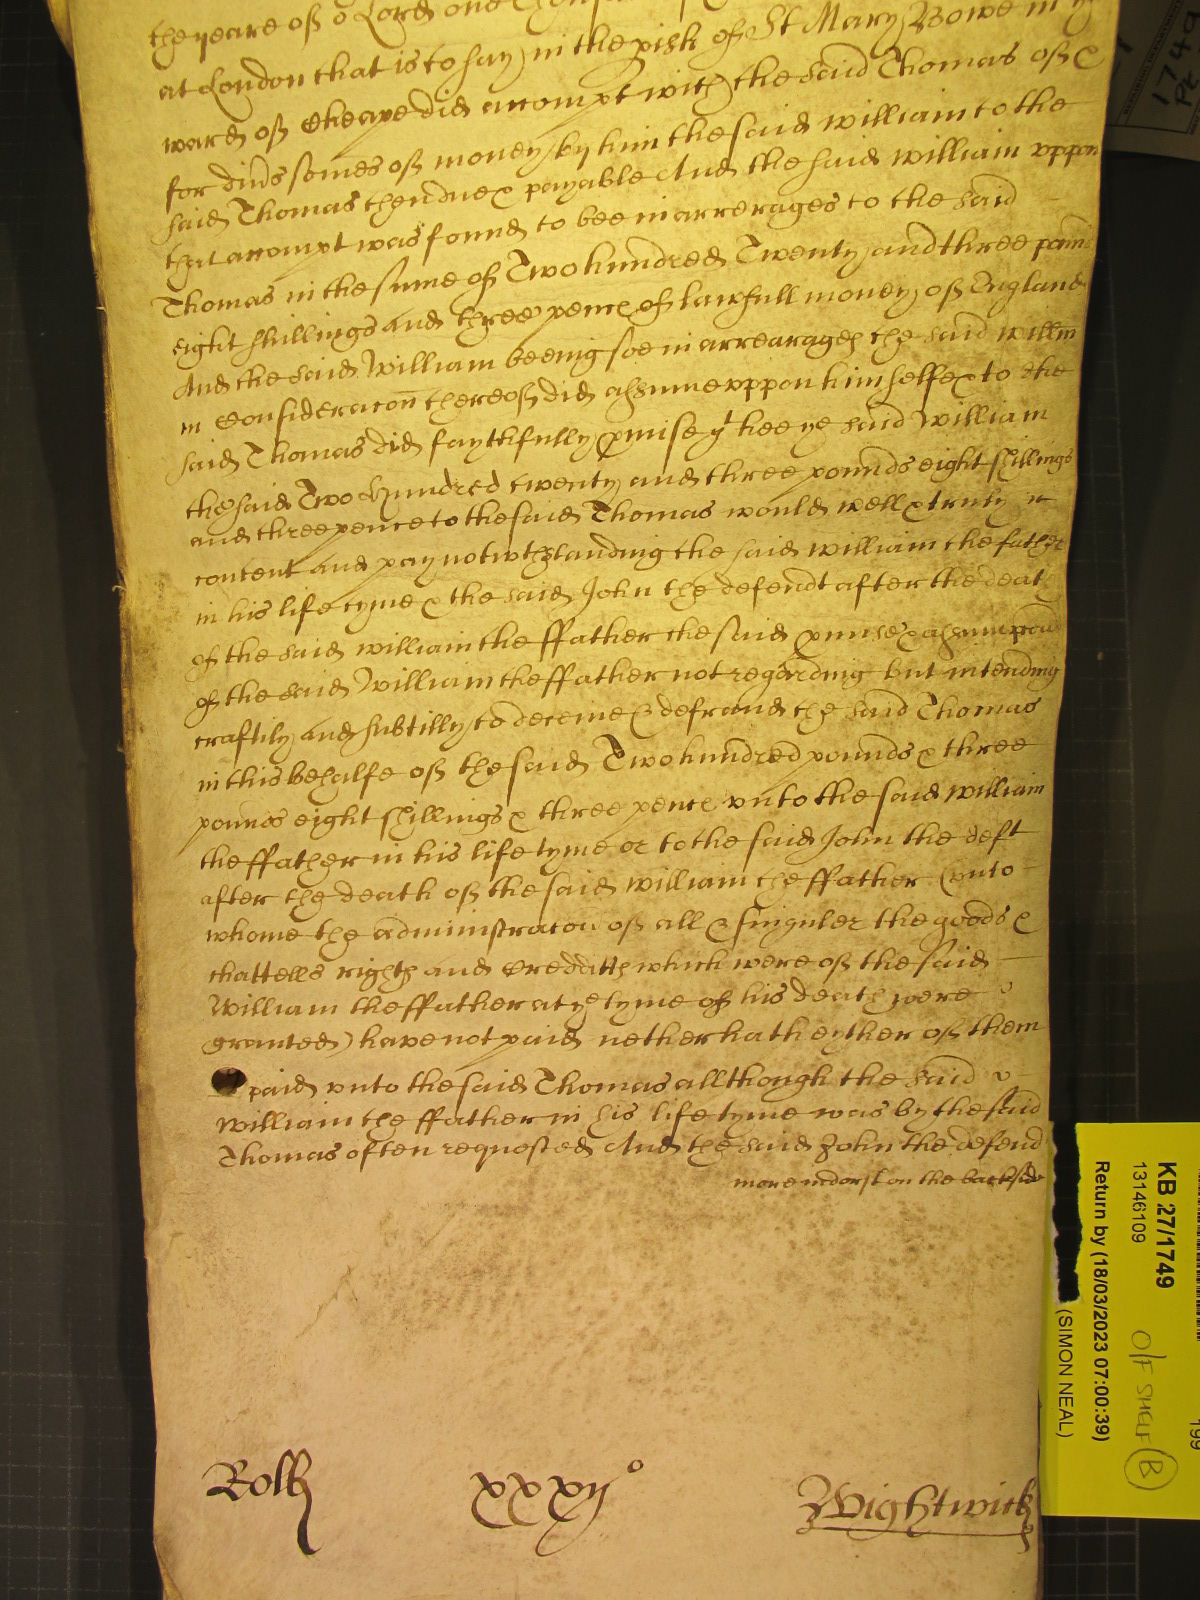 the yeare of o Lord one Thousand
at London that is to say in the pish of St Mary Bowe in ye
ward of Cheape did accompt with the said Thomas of &
for divs somes of money by him the said William to the
said Thomas then due & payable And the said William vppon
that accompt was found to bee in arrerages to the said
Thomas in the sume of Two hundred Twenty and three pounds
eight shillings and three pence of lawfull money of England
And the said William beeing soe in arrearages the said Willm
in Consideracon thereof did assume vppon himselfe & to the
said Thomas did faythfully pmise yt hee ye said William
the said Two Hundred twenty and three pounds eight shillings
and three pence to the said Thomas would well & truly
content and pay notwthstanding the said William the father
in his life tyme & the said John the defendt after the death
of the said William the ffather the said pmise & assumpcon
of the said William the ffather not regarding but intending
craftily and subtilly to deceive & defraud the said Thomas
in this behalfe of the said Two hundred pounds & three
pounds eight shillings & three pence vnto the said William
the ffather in his life tyme or to the said John the deft
after the death of the said William the ffather (vnto
whome the administracon of all & singuler the goods &
chattells rights and Creditts which were of the said
William the ffather at ye tyme of his death were
granted) have not paid nether hath eyther of them
paid vnto the said Thomas allthough the said
William the ffather in his life tyme was by the said
Thomas often requested And the said John the defend
more indorst on the backside
Roll xxxijo Wightwick
KB 27/1749
13146109
Return by (18/03/2023 07:00:39)
(SIMON NEAL)
O/F SHELF B
199
1749